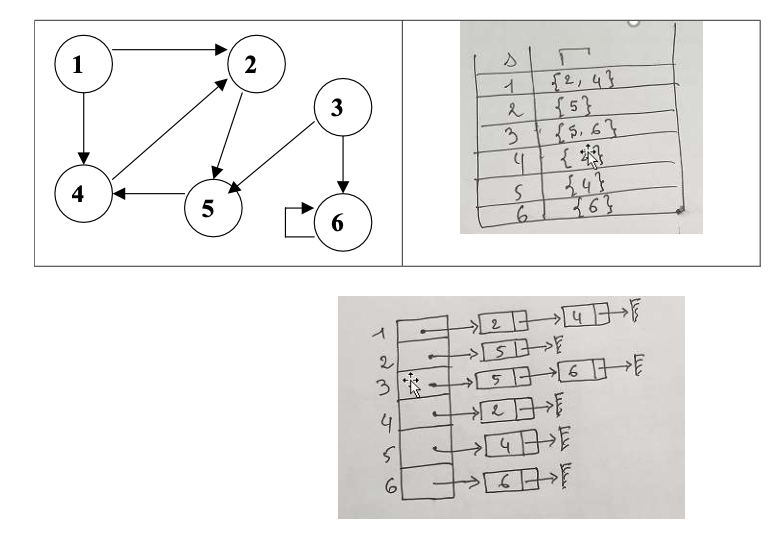 1
2
3
4
5
6
s Γ
1 {2, 4}
2 {5}
3 {5, 6}
4 { }
5 {4}
6 {6}
1 2 4
2 5
3 5 6
4 2
5 4
6 6